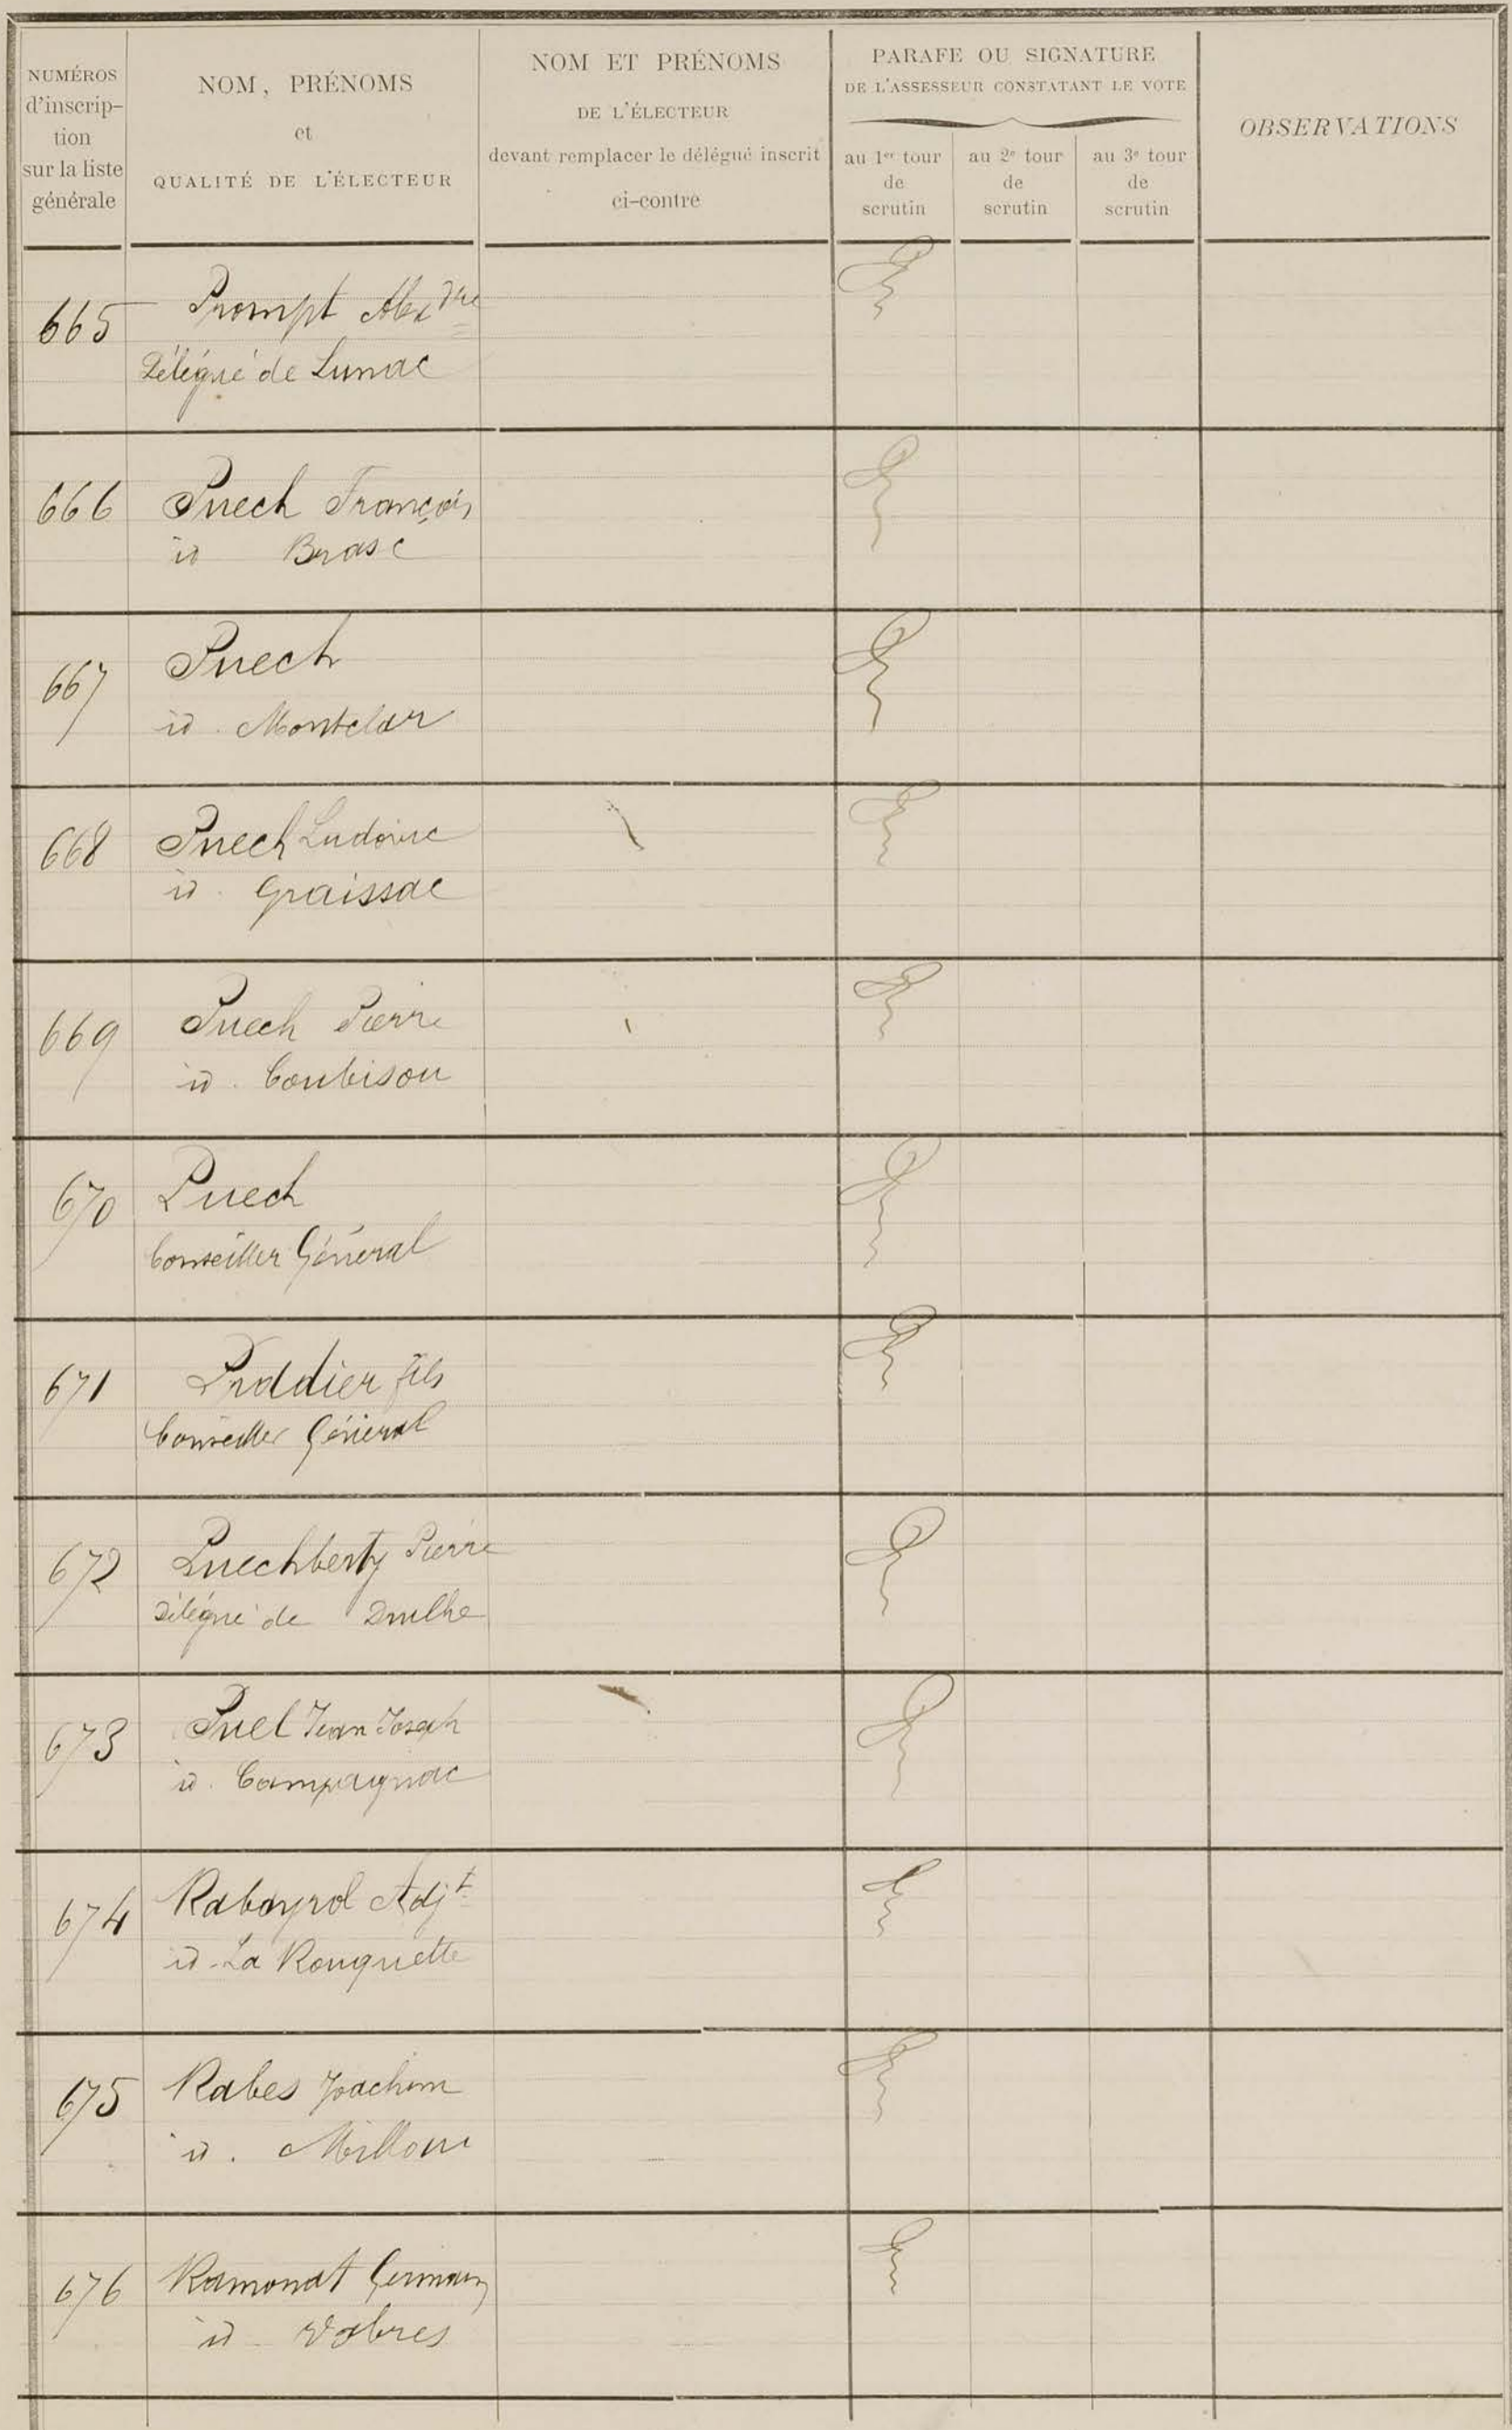 NUMÉROS
d'inscrip-
tion
sur la liste
générale
NOM, PRÉNOMS
et
QUALITÉ DE L'ÉLECTEUR
NOM ET PRÉNOMS
DE L'ÉLECTEUR
devant remplacer le délégué inscrit
ci-contre
PARAFE OU SIGNATURE
DE L'ASSESSEUR CONSTATANT LE VOTE
au 1er tour
de
scrutin
au 2e tour
de
scrutin
au 3e tour
de
scrutin
OBSERVATIONS
665 Prompt Alexdre
Délégué de Lunac
666 Puech François
id Brasc
667 Puech
id. Montclar
668 Puech Ludovic
id. Graissac
669 Puech Pierre
id. Coubisou
670 Puech
Conseiller Général
671 Pradier fils
Conseiller Général
672 Puechberty Pierre
Délégué de Drulhe
673 Puel Jean Joseph
id. Campagnac
674 Rabayrol Adjt
id. La Rouquette
675 Rabes Joachim
id.
676 Ramonat Germain
id Vabres